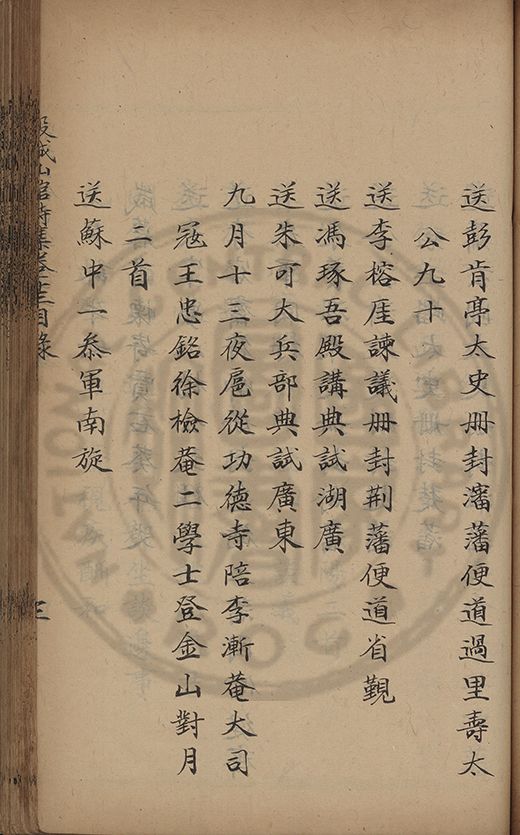 送彭肯亭太史册封瀋藩便道過里壽太
公九十
送李榕厓諫議册封荆藩便道省觐
送馮琢吾殿講典試湖廣
送朱可大兵部典試廣東
九月十三夜扈從功德寺陪李漸菴大司
冦王忠銘徐檢菴二學士登金山對月
二首
送蘇中一叅軍南旋
山館詩集卷 目錄
三